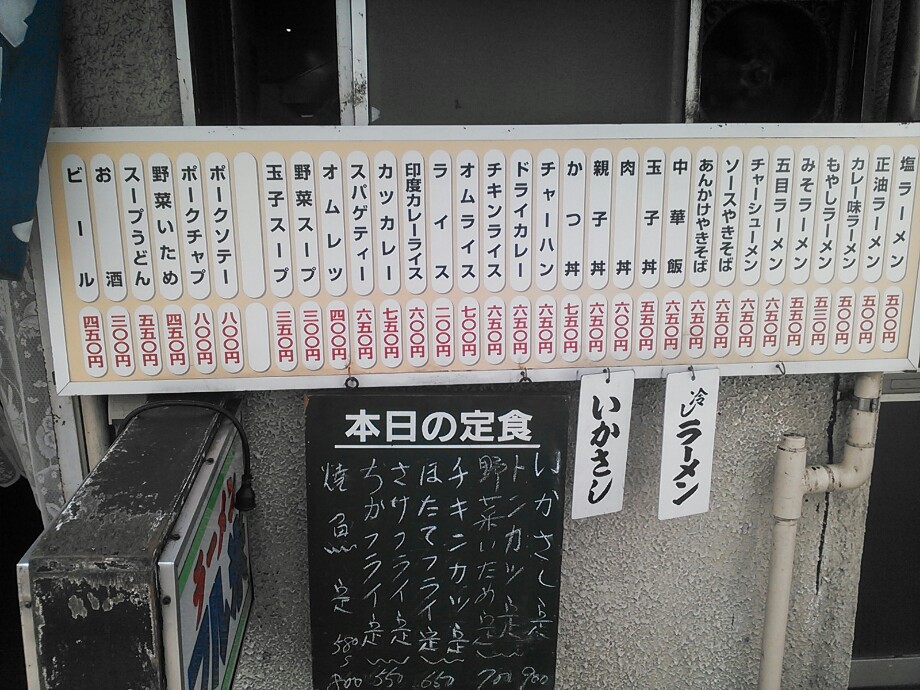 塩ラーメン 五〇〇円
正油ラーメン 五〇〇円
カレー味ラーメン 五〇〇円
もやしラーメン 五三〇円
みそラーメン 五五〇円
五目ラーメン 六五〇円
チャーシューメン 六五〇円
ソースやきそば 六五〇円
あんかけやきそば 六五〇円
中華飯 六五〇円
玉子丼 五五〇円
肉丼 六〇〇円
親子丼 六五〇円
かつ丼 七五〇円
チャーハン 六五〇円
ドライカレー 六五〇円
チキンライス 六五〇円
オムライス 七〇〇円
ライス 二〇〇円
印度カレーライス 六〇〇円
カツカレー 七五〇円
スパゲティー 六五〇円
オムレツ 四〇〇円
野菜スープ 三〇〇円
玉子スープ 三五〇円
ポークソテー 八〇〇円
ポークチャプ 八〇〇円
野菜いため 四五〇円
スープうどん 五五〇円
お酒 三〇〇円
ビール 四五〇円
冷しラーメン
いかさし
本日の定食
いかさし定 900
トンカツ定
野菜いため定 700
チキンカツ定
ほたてフライ定 650
さけフライ定
ちかフライ定 550
焼魚定 580
ラーメン